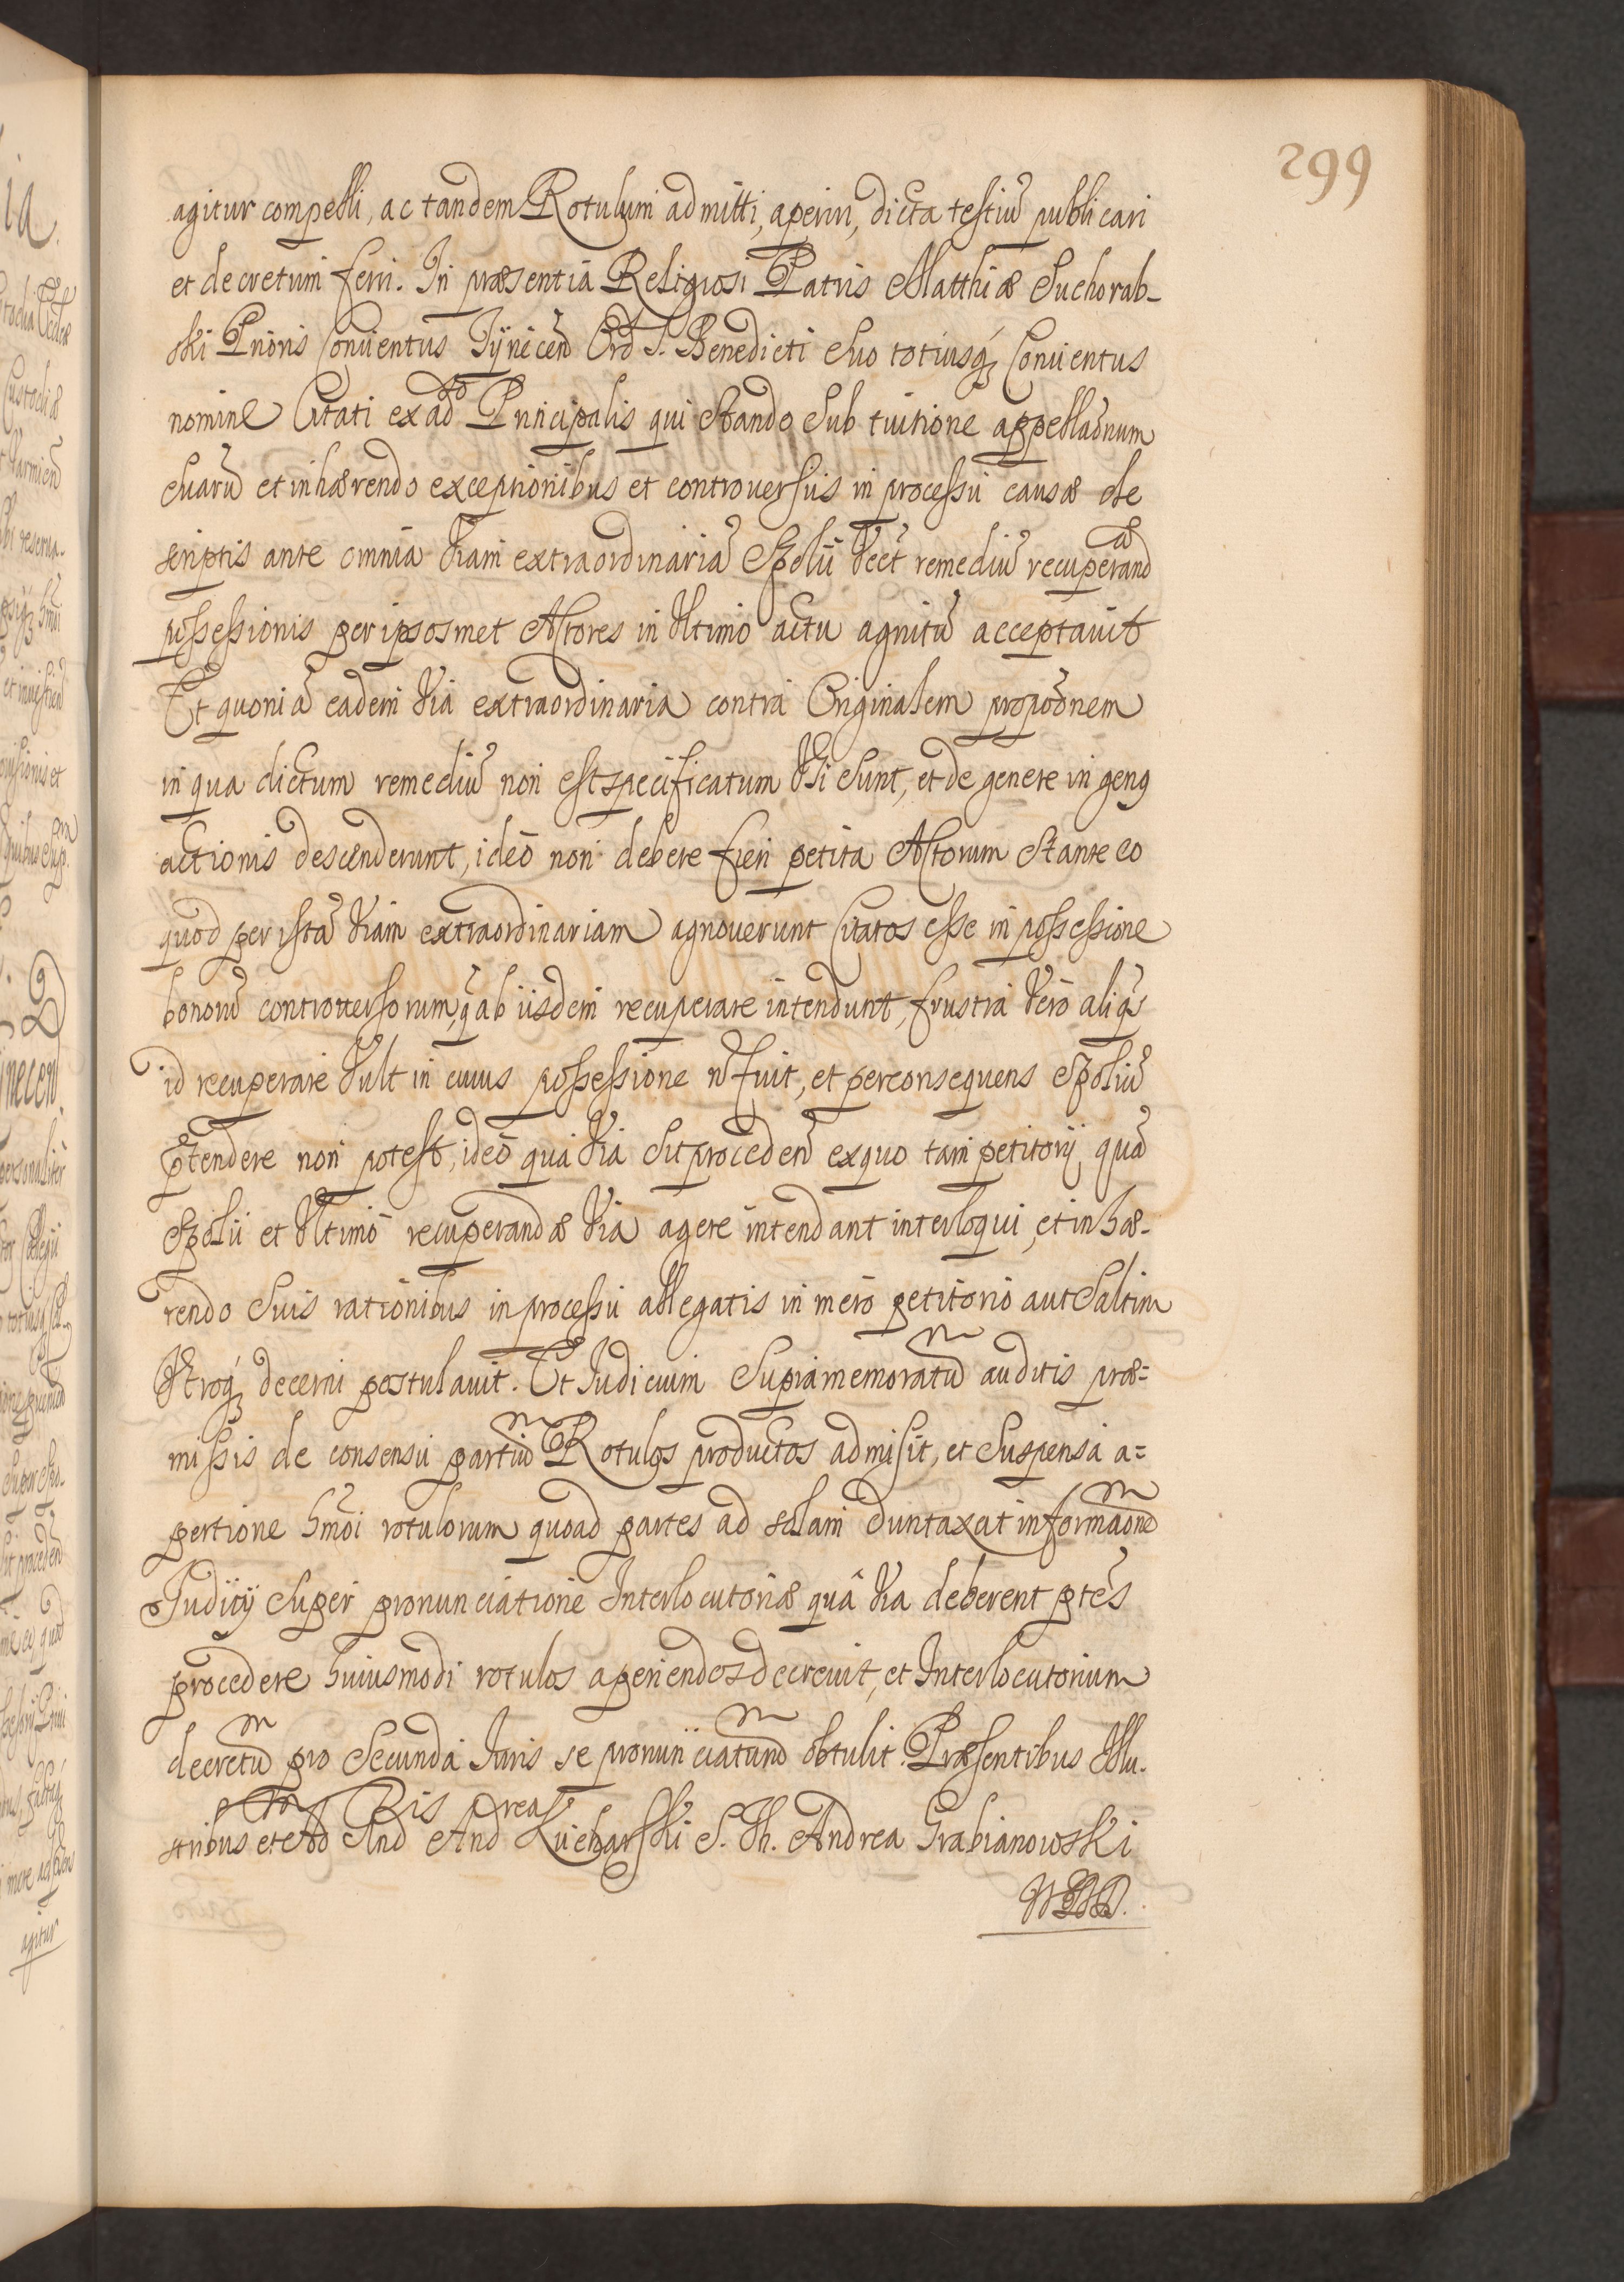 299
agitur compelli, ac tandem Rotulum admitti, aperiri, dicta testiũ publicari
et decretum ferri. In præsentia Religiosi Patris Matthiæ Suchorab-
ski Prioris Conuentus Tÿnecen̄ Ord S. Benedicti Suo totiusq́ꝫ Conuentus
nomine Citati ex adᵒ Principalis qui Stando Sub tuitione appellaōnum
Suarũ et inhærendo exceptionibus et controuersiis in processu causæ de
scriptis ante omnia Viam extraordinariã Spolii Vĕet remediũ recuperandæ
possessionis per ipsosmet Actores in Vltimo actu agnitũ acceptauit
Et quoniã eadem Via extraordinaria contra Originalem propōnem
in qua dictum remediũ non est specificatum Vsi Sunt, et de genere in geng
actionis descenderunt, ideo non debere fieri petita Actorum Stante eo
quod per istã Viam extraordinariam agnouerunt Citatos esse in possessione
bonorũ controuersorum, q̃ ab iisdem recuperare intendunt, frustra Vero aliq̃s
id recuperare Vult in cuius possessione n̄ fuit, et per consequens Spoliũ
p̃tendere non potest, ideo qua Via Sit proceden̄ ex quo tam petitorij quã
Spolii et Vltimo recuperandæ Via agere intendant interloqui, et inhæ-
rendo Suis rationibus in processu allegatis in mero petitorio aut Saltim
Vtroq́ꝫ decerni postulauit. Et Iudicium Supramemoratum auditis præ=
missis de consensu partium Rotulos productos admisit, et Suspensa a=
pertione hm̃oi rotulorum quoad partes ad solam duntaxat informaōnem
Iudicÿ Super pronunciatione Interlocutoriæ quâ Via deberent ptẽs
procedere huiusmodi rotulos aperiendos decreuit, et Interlocutorium
decretum pro Secunda Iuris se pronunciatum̄ obtulit. Præsentibus Illu-
stribus et Adm̄ Rnd̄is Andrea Kucharski S. Th. Andrea Grabianowski